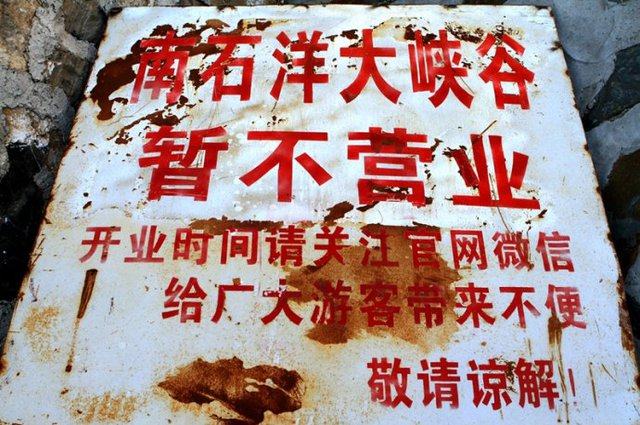 南石洋大峡谷
暂不营业
开业时间请关注官网微信
给广大游客带来不便
敬请谅解！